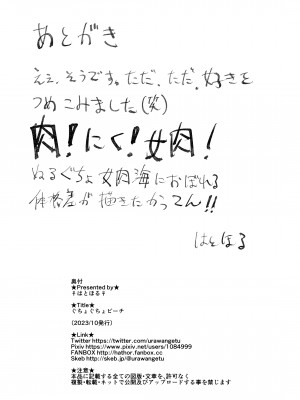 あとがき
ええ、そうです。ただ、ただ、好きを
つめこみました(笑)
肉!にく!女肉!
ぬるぐちょ女肉海におぼれる
体格差が描きたかってん!!
はとほる
奥付
★Presented by★
♀はとほる♀
★Title★
ぐちょぐちょビーチ
(2023/10発行)
★Link★
Twitter https://twitter.com/urawangetu
Pixiv https://pixiv.net/users/1084999
FANBOX http://hathor.fanbox.cc
Skeb http://skeb.jp/@urawangetu
★注意★
本品に記載する全ての図版・文章を、許可なく
複製・転載・ネットで公開及びアップロードする事を禁じます